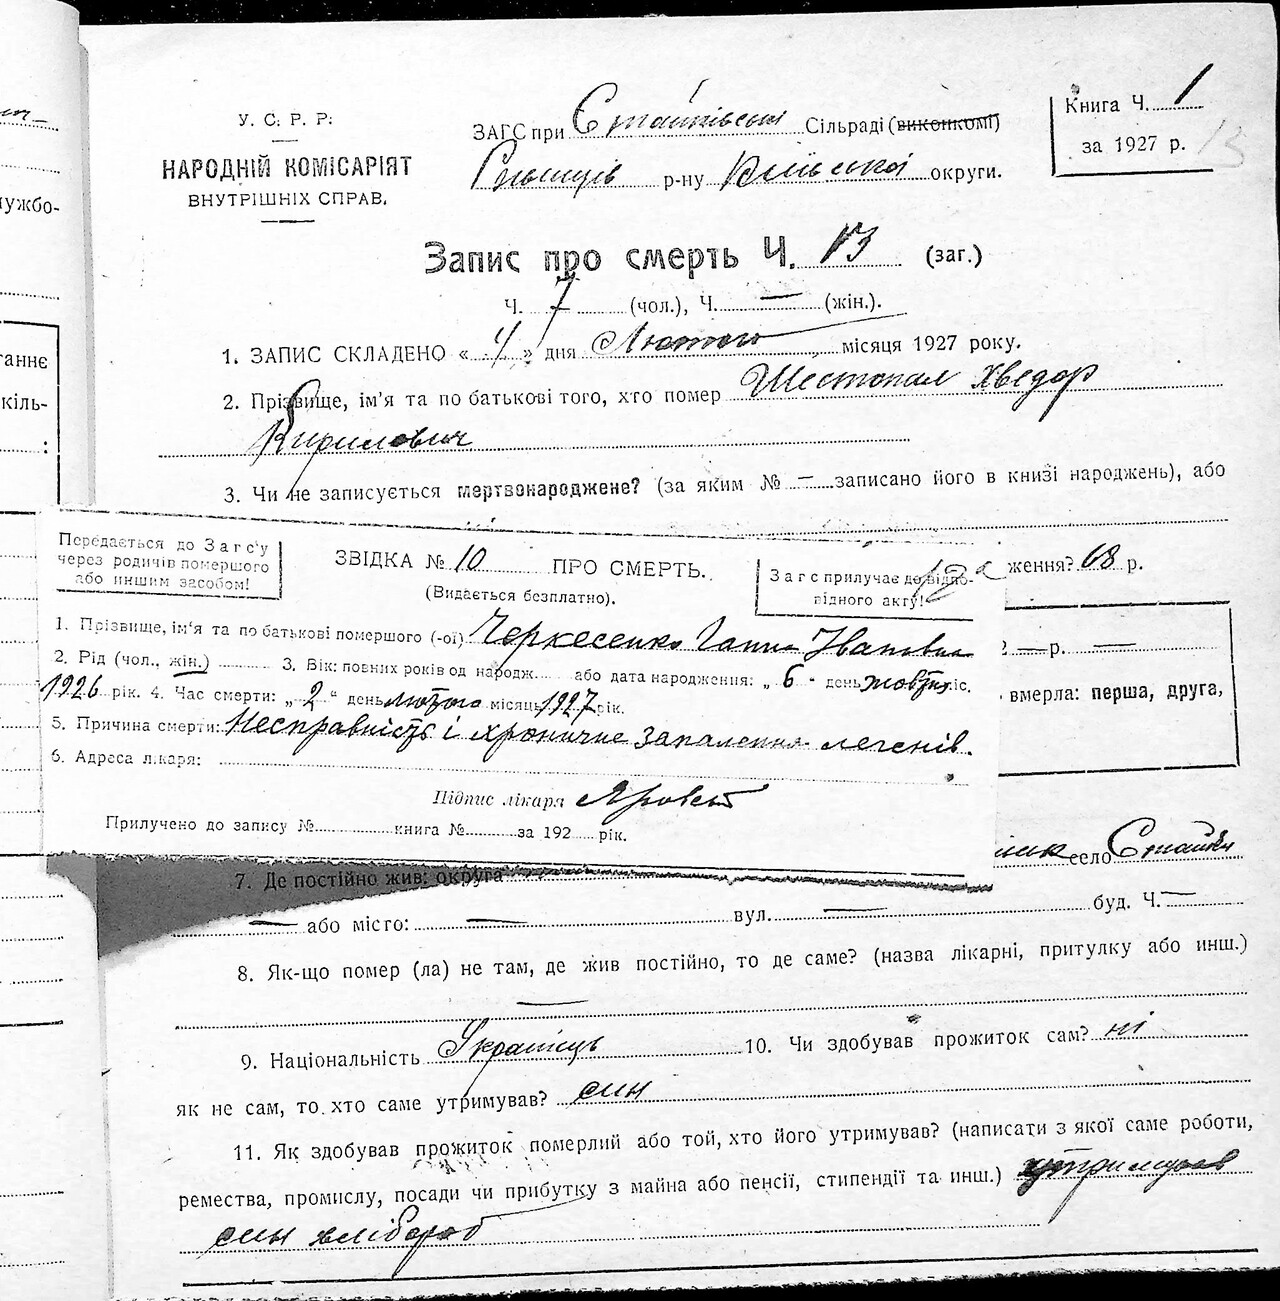 У. С. Р. Р.
НАРОДНІЙ КОМІСАРІЯТ
ВНУТРІШНІХ СПРАВ.
ЗАГС при Стайківській Сільраді (виконкомі)
р-ну Київської округи.
Книга Ч. 1
за 1927 р.
13
Запис про смерть Ч. 13 (заг.)
Ч. 7 (чол.), Ч. — (жін.).
1. ЗАПИС СКЛАДЕНО « 4 » дня Лютого місяця 1927 року.
2. Прізвище, ім'я та по батькові того, хто помер Шестопал Хведор
Кирилович
3. Чи не записується мертвонароджене? (за яким № — записано його в книзі народжень), або
ження? 68 р.
— р. —
вмерла: перша, друга,
Передається до Загс'у
через родичів помершого
або иншим засобом!
ЗВІДКА № 10 ПРО СМЕРТЬ.
(Видається безплатно).
Загс прилучає до відпо-
відного акту!
1. Прізвище, ім'я та по батькові помершого (-ої) Черкесенко Ганна Івановна
2. Рід (чол., жін.) 3. Вік: повних років од народж. або дата народження: „ 6 " день жовтня міс.
1926 рік. 4. Час смерти: „ 2 " день лютого місяць 1927 рік.
5. Причина смерти: Несправність і хроничне запалення легенів.
6. Адреса лікаря:
Підпис лікаря
Прилучено до запису № книга № за 192 рік.
село Стайки
7. Де постійно жив: округа
— або місто: — вул. — буд. Ч. —
8. Як-що помер (ла) не там, де жив постійно, то де саме? (назва лікарні, притулку або инш.)
—
9. Національність Українець 10. Чи здобував прожиток сам? ні
як не сам, то хто саме утримував? син
11. Як здобував прожиток померлий або той, хто його утримував? (написати з якої саме роботи,
ремества, промислу, посади чи прибутку з майна або пенсії, стипендії та инш.) утримував
син хлібороб
ужбо-
ганнє
кіль-
: